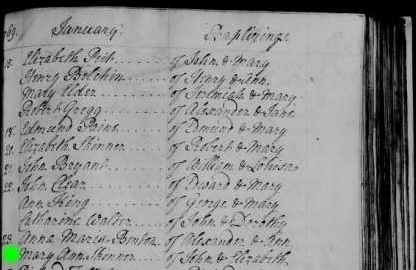 1769. January. Baptizings
18. Elizabeth Peit of John & Mary
Henry Bolchin of Henry & Ann
Mary Elder of & Mary
Robert Gregg of Alexander & Jane
18. Edmund Paine of Edmund & Mary
20. Elizabeth Skinner of Robert & Mary
21. John Bryant of William & Lovisa
22. John Cesar of Edward & Mary
Ann King of George & Mary
Catharine Walter of John & Dorothy
23. Anna Maria Benton of Alexander & Ann
Mary Ann Skinner of John & Elizabeth